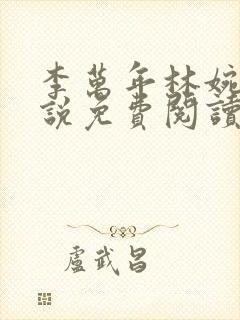 李萬年林婉
説免費閱讀
盧武昌